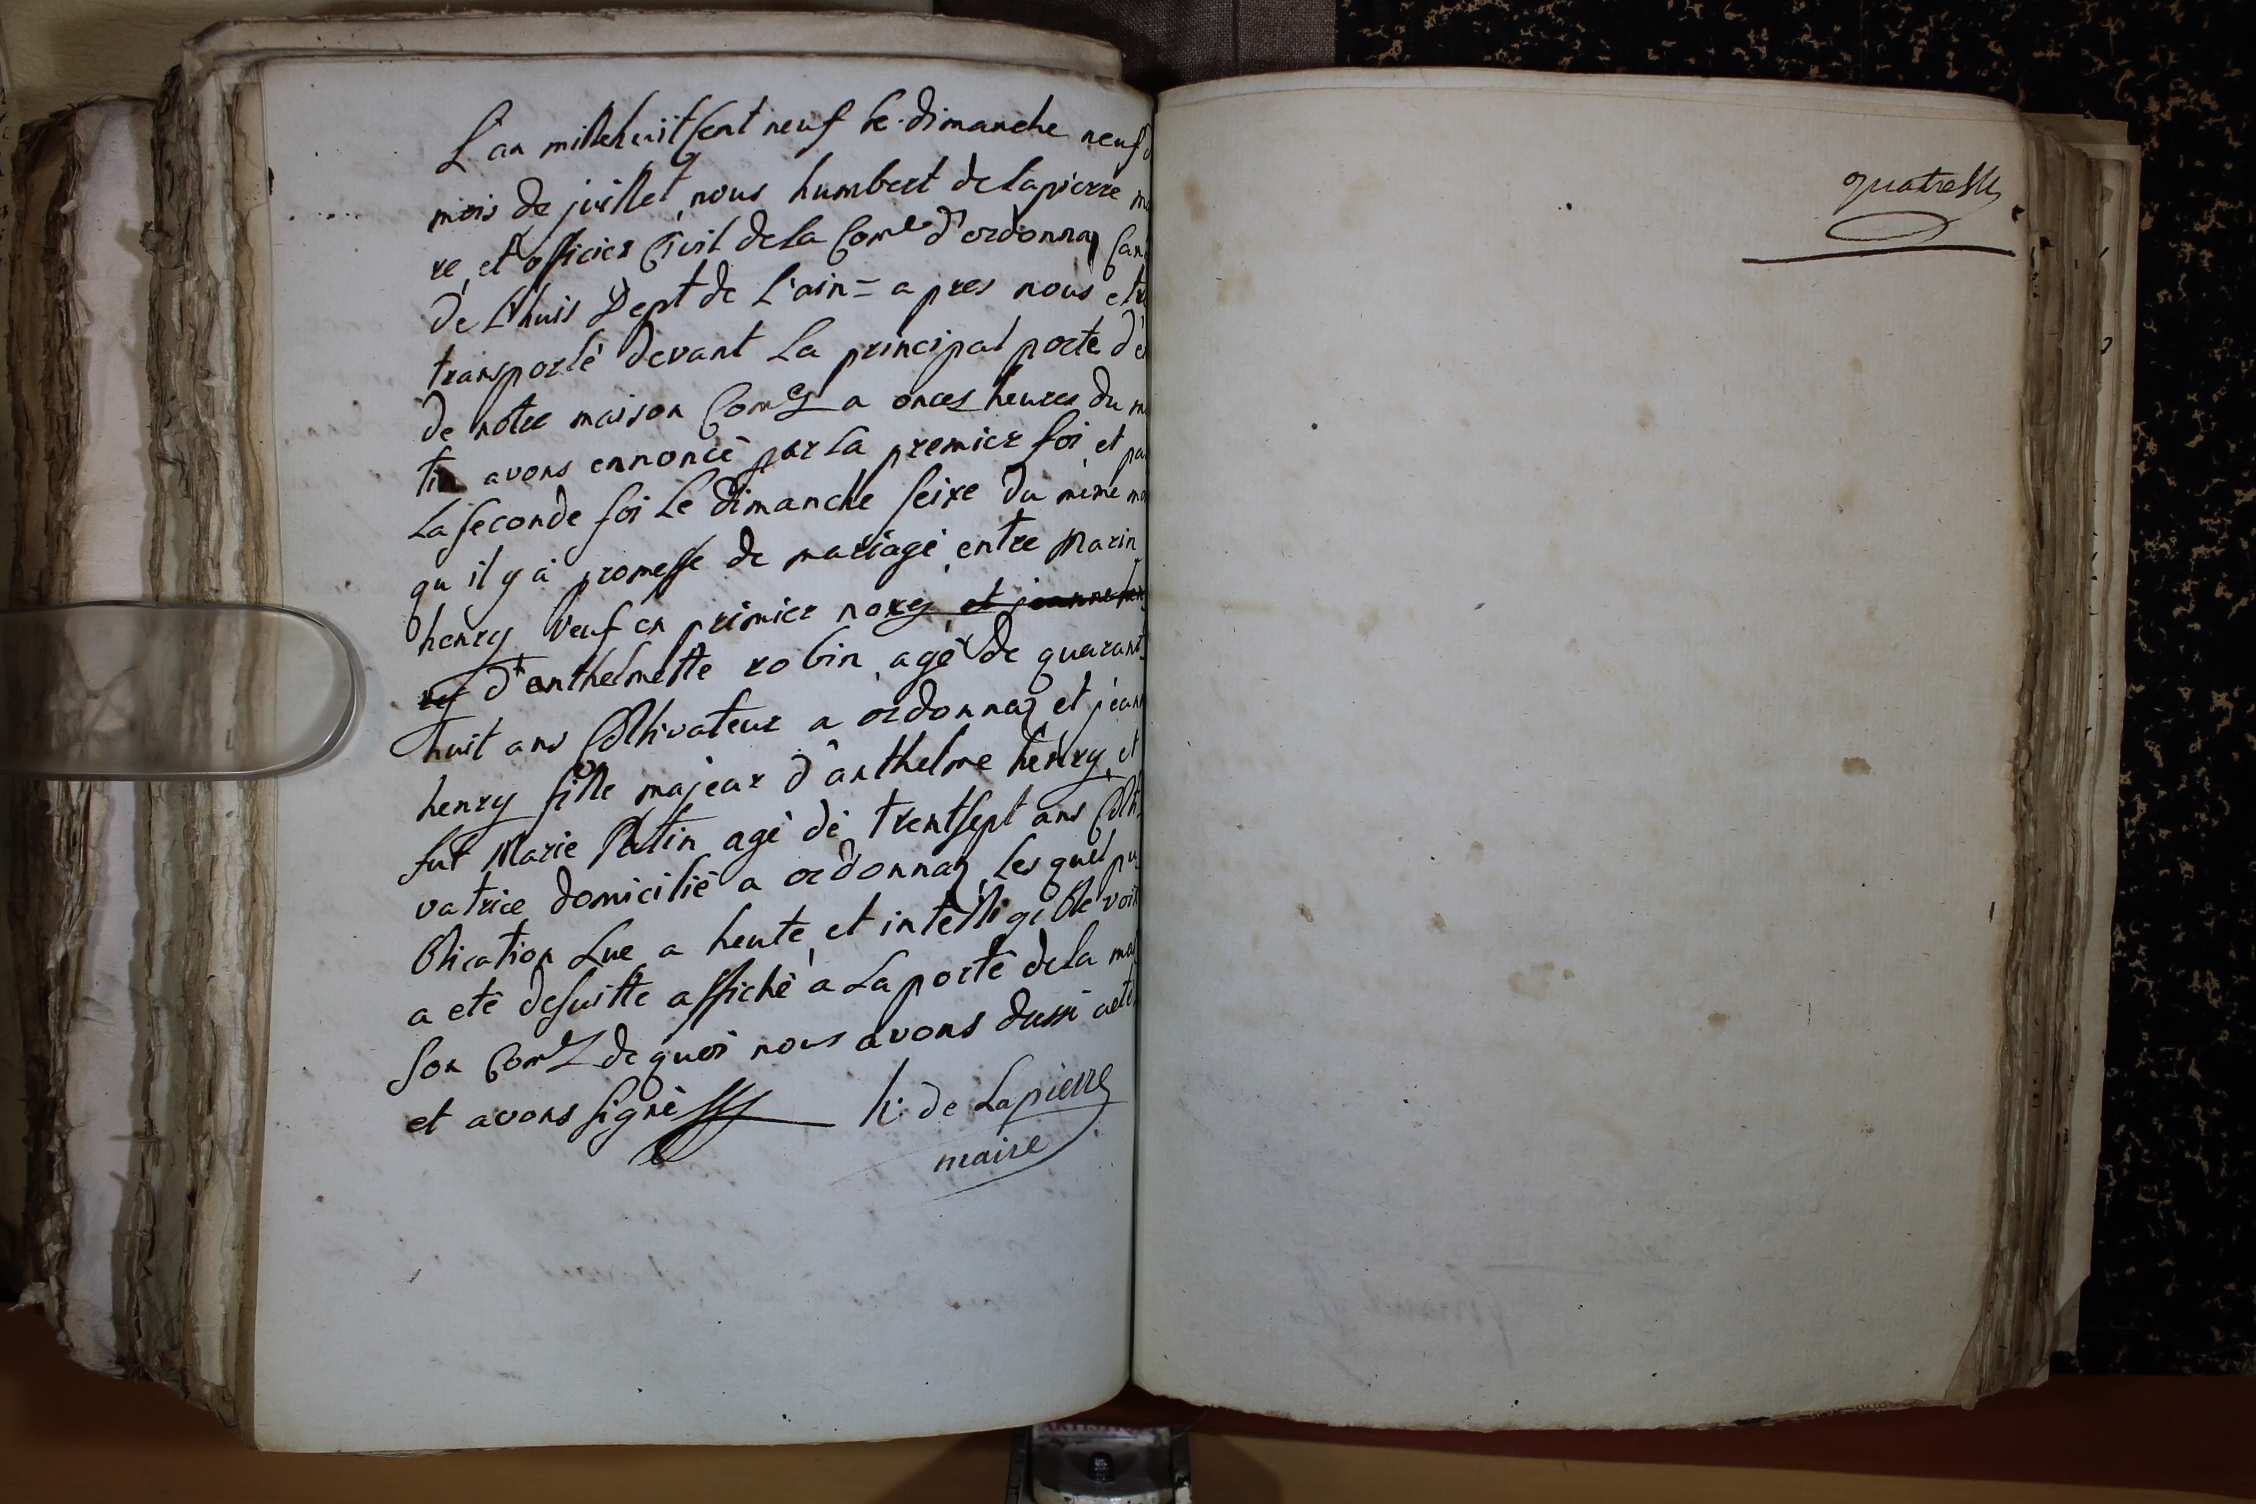 L'an millehuit sent neuf le dimanche neuf d
mois de juillet, nous humbert delapierre ma
re, et officier Civil de la Comle d'ordonnaz Can
de L'huis Dept de L'ain = apres nous etre
transporté devant La principal porte d'en
de notre maison Come a onces heures du ma
tin avons ennoncé par La premier foi, et pa
La seconde foi Le dimanche seixe du même mo
qu il y à promesse de mariage, entre Marin
henry, veuf en primier nocy, et jeanne hen
ry d'anthelmette robin, agé de quarant
huit ans Coltivateur a ordonnaz, et jeann
henry fille majear d'anthelme henry, et
fut Marie Patin agé de trentsept ans Colti
vatrice domicilié a ordonnaz, les quel pu
blication Lue a heute, et intelligible voix
a eté desuitte affiché a La porte dela mai
son Come de quoi nous avons dussi acte
et avons signé h: de Lapierre
maire
quatre